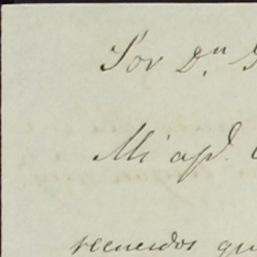 Sor Dn
Mi apd.
recuerdos que